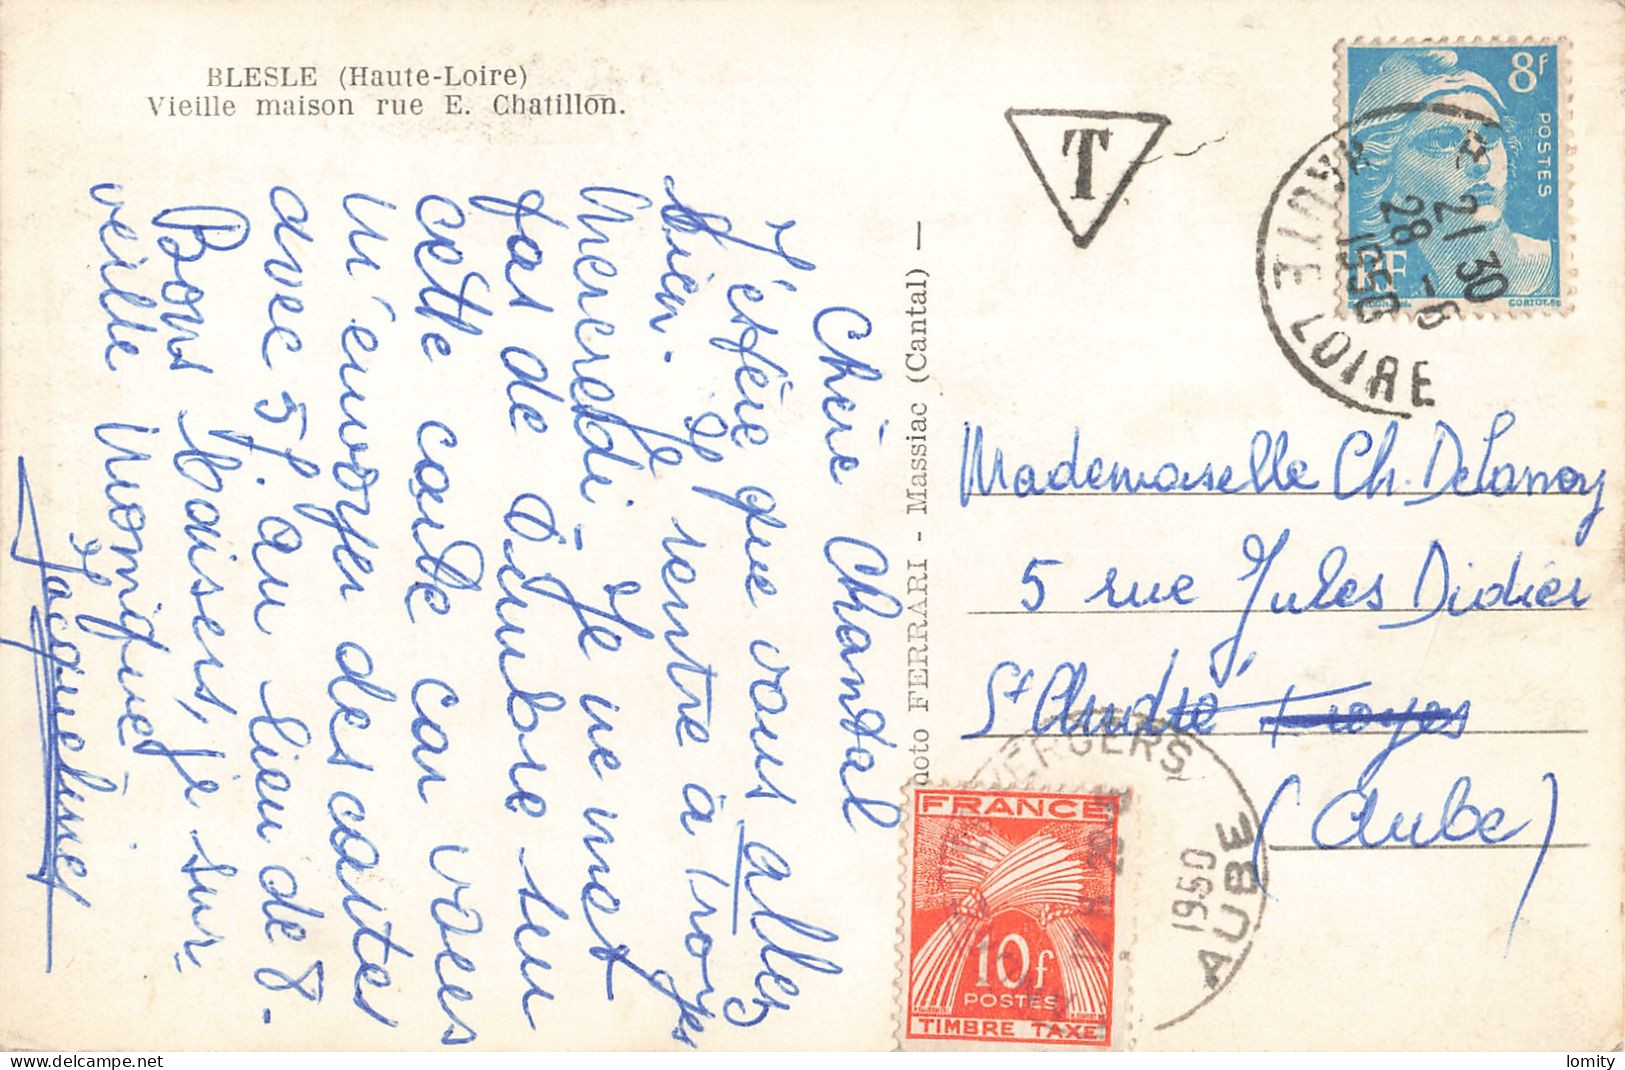 BLESLE (Haute-Loire)
Vieille maison rue E. Chatillon.
Chère Chantal
J'espère que vous allez
bien. Je rentre à Troyes
Mercredi - Je ne met
pas de timbre sur
cette carte car vous
m'envoyer des cartes
avec 5f. au lieu de 8 -
Bons baisers, je sur-
veille Monique
Jacqueline
photo FERRARI - Massiac (Cantal) —
T
8f
POSTES
RF
21 30
28 - 6
1950
HAUTE LOIRE
Mademoiselle Ch. Delannoy
5 rue Jules Didier
St André Troyes
(Aube)
FRANCE
10f
POSTES
TIMBRE TAXE
VERGERS
1950
AUBE
delcampe.net
lomity